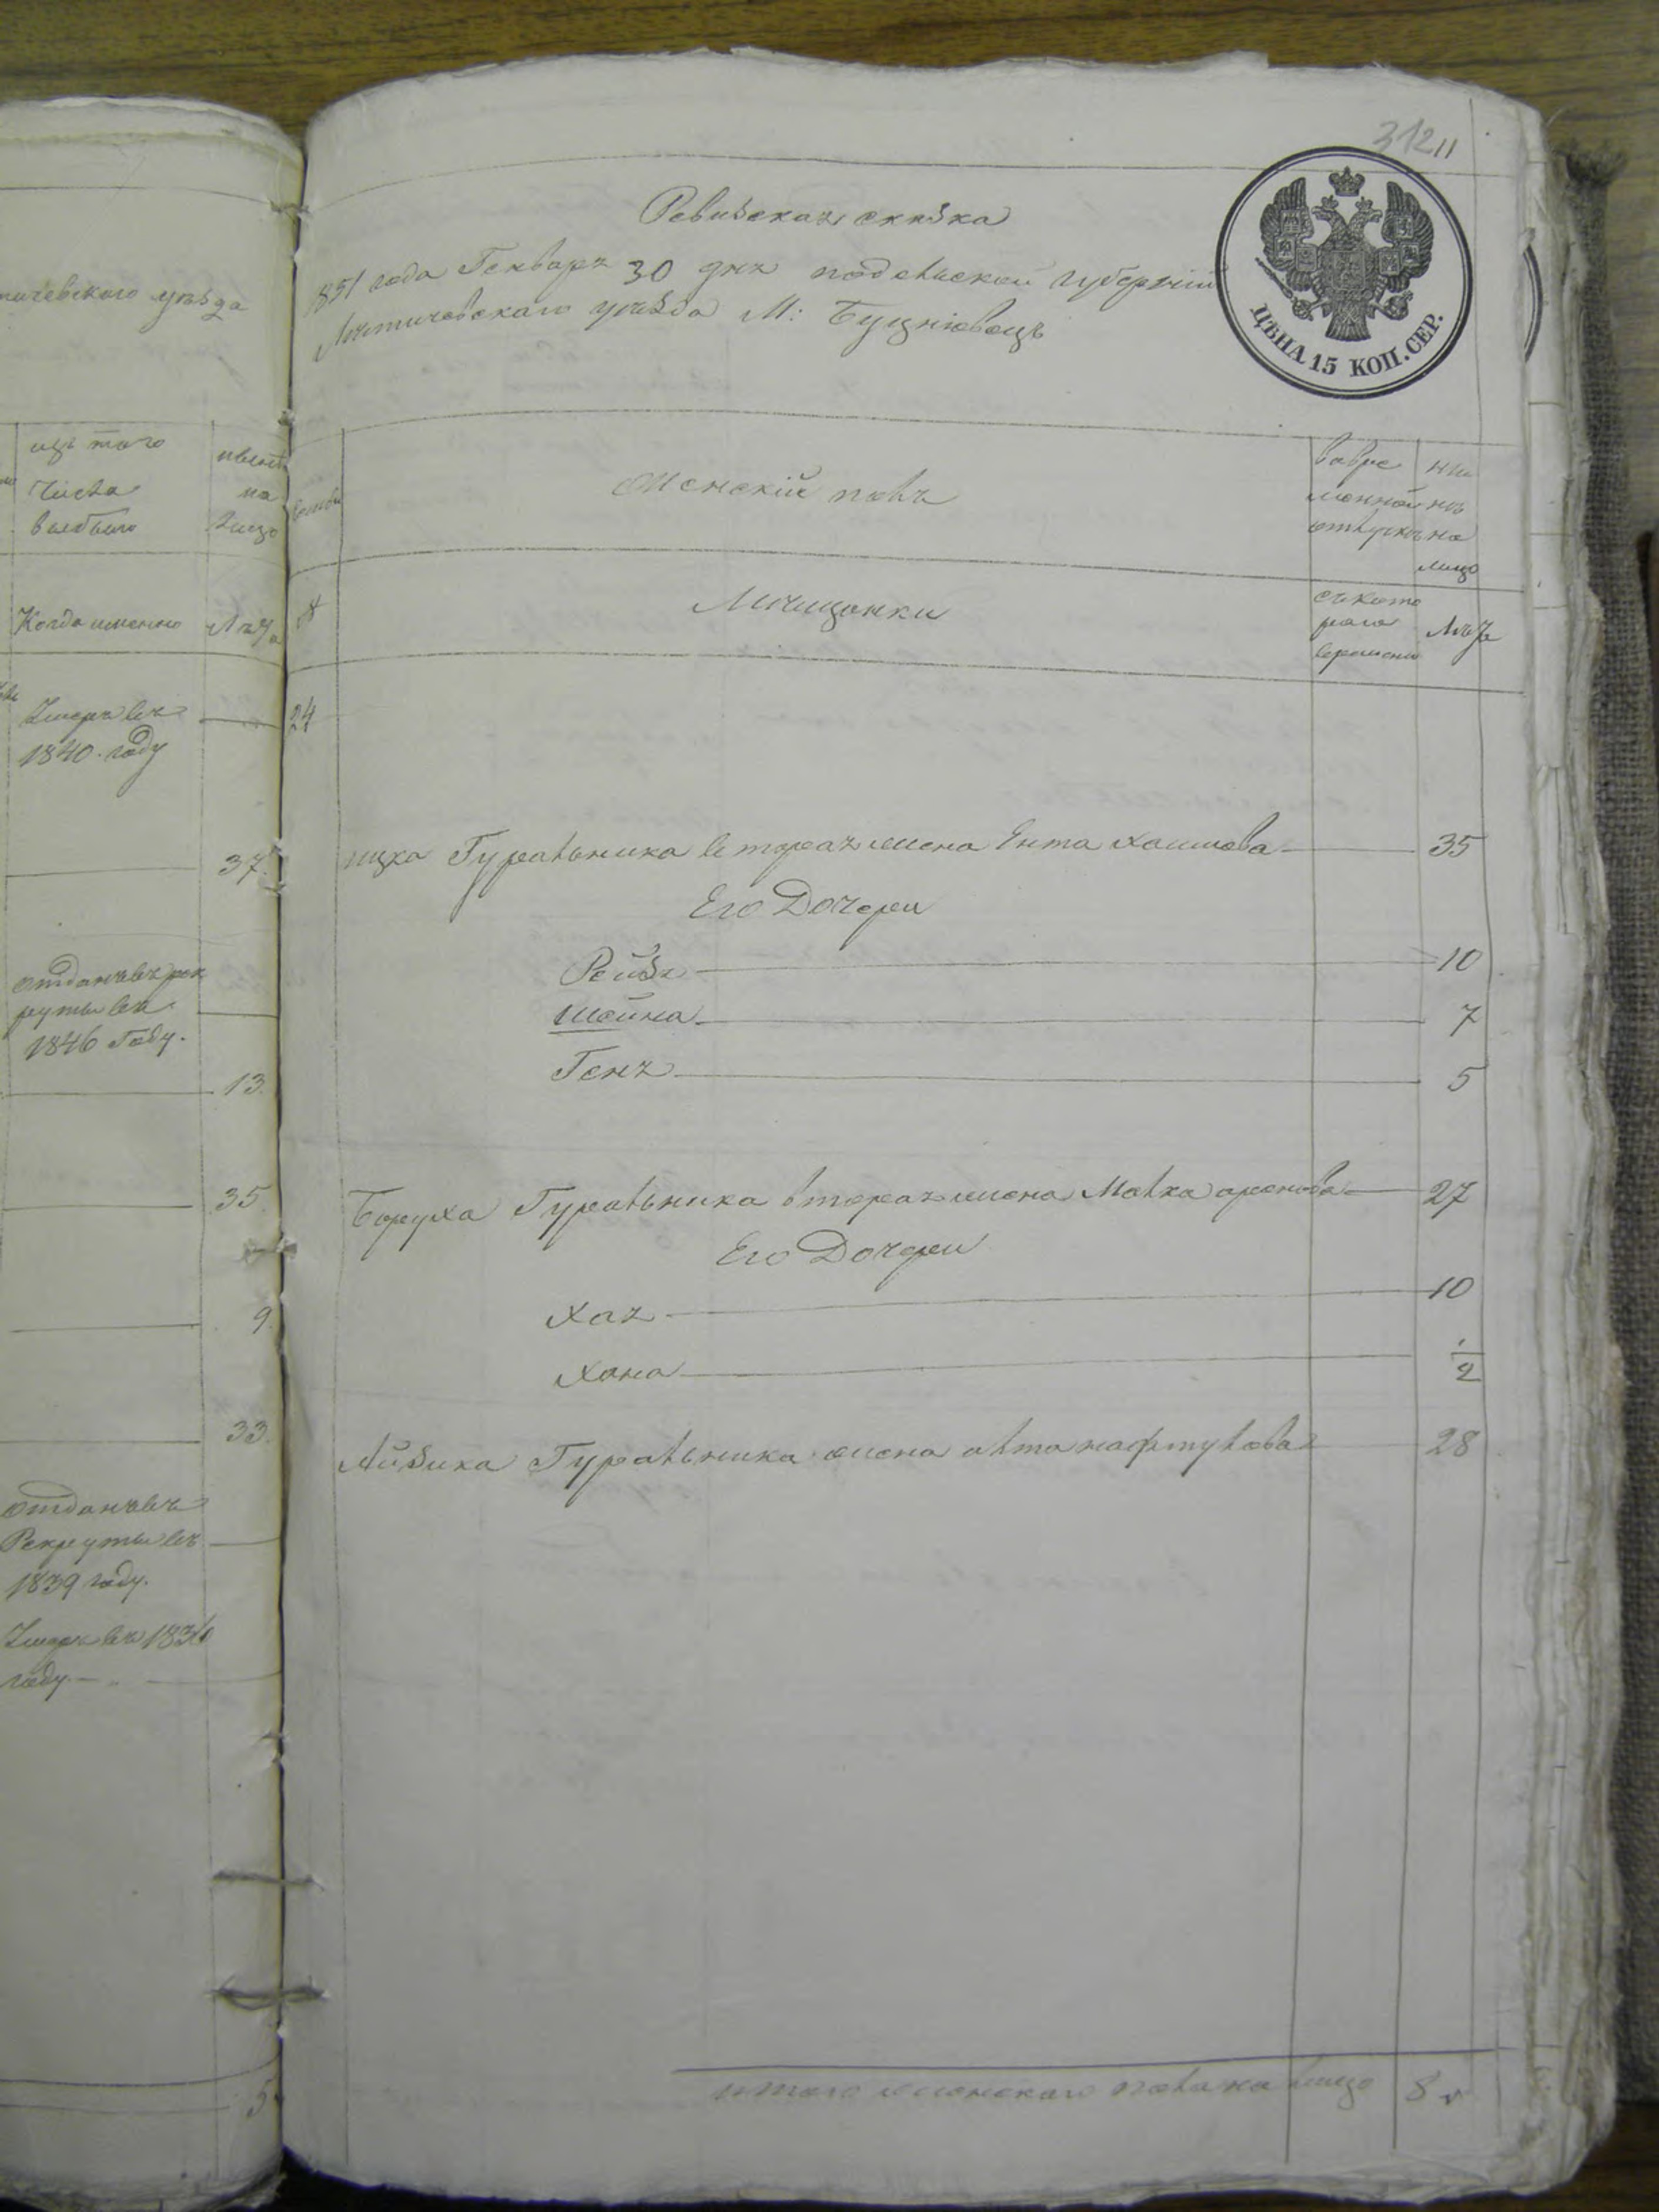 тичевского уѣзда
изъ того
числа
выбыло
нынѣ
на
лицо
Когда именно
Лѣта
Умеръ въ
1840. году
37.
отданъ въ рек
руты въ
1846 году.
13.
35
9.
33.
отданъ въ
Рекруты въ
1839 году.
Умеръ въ
году
5
312
11
Ревизская сказка
1851 года Генваря 30 дня подольской губерніи
Лѣтичовскаго уѣзда М: Буцнювоцъ
ЦѢНА 15 КОП. СЕР.
Женскій полъ
вовре
менной
отлучкѣ
ны
нѣ
на
лицо
№
Мѣщанки
съ кото
раго
времени
Лѣта
24
ицка Гуральника вторая жена Ента хаимова 35
Его Дочери
Рейзя 10
Шейна 7
Геня 5
Боруха Гуральника вторая жена Малка аронова 27
Его Дочери
Хая 10
Хана ½
Айзика Гуральника жена алта нафтулова 28
итого женскаго пола на лицо 8